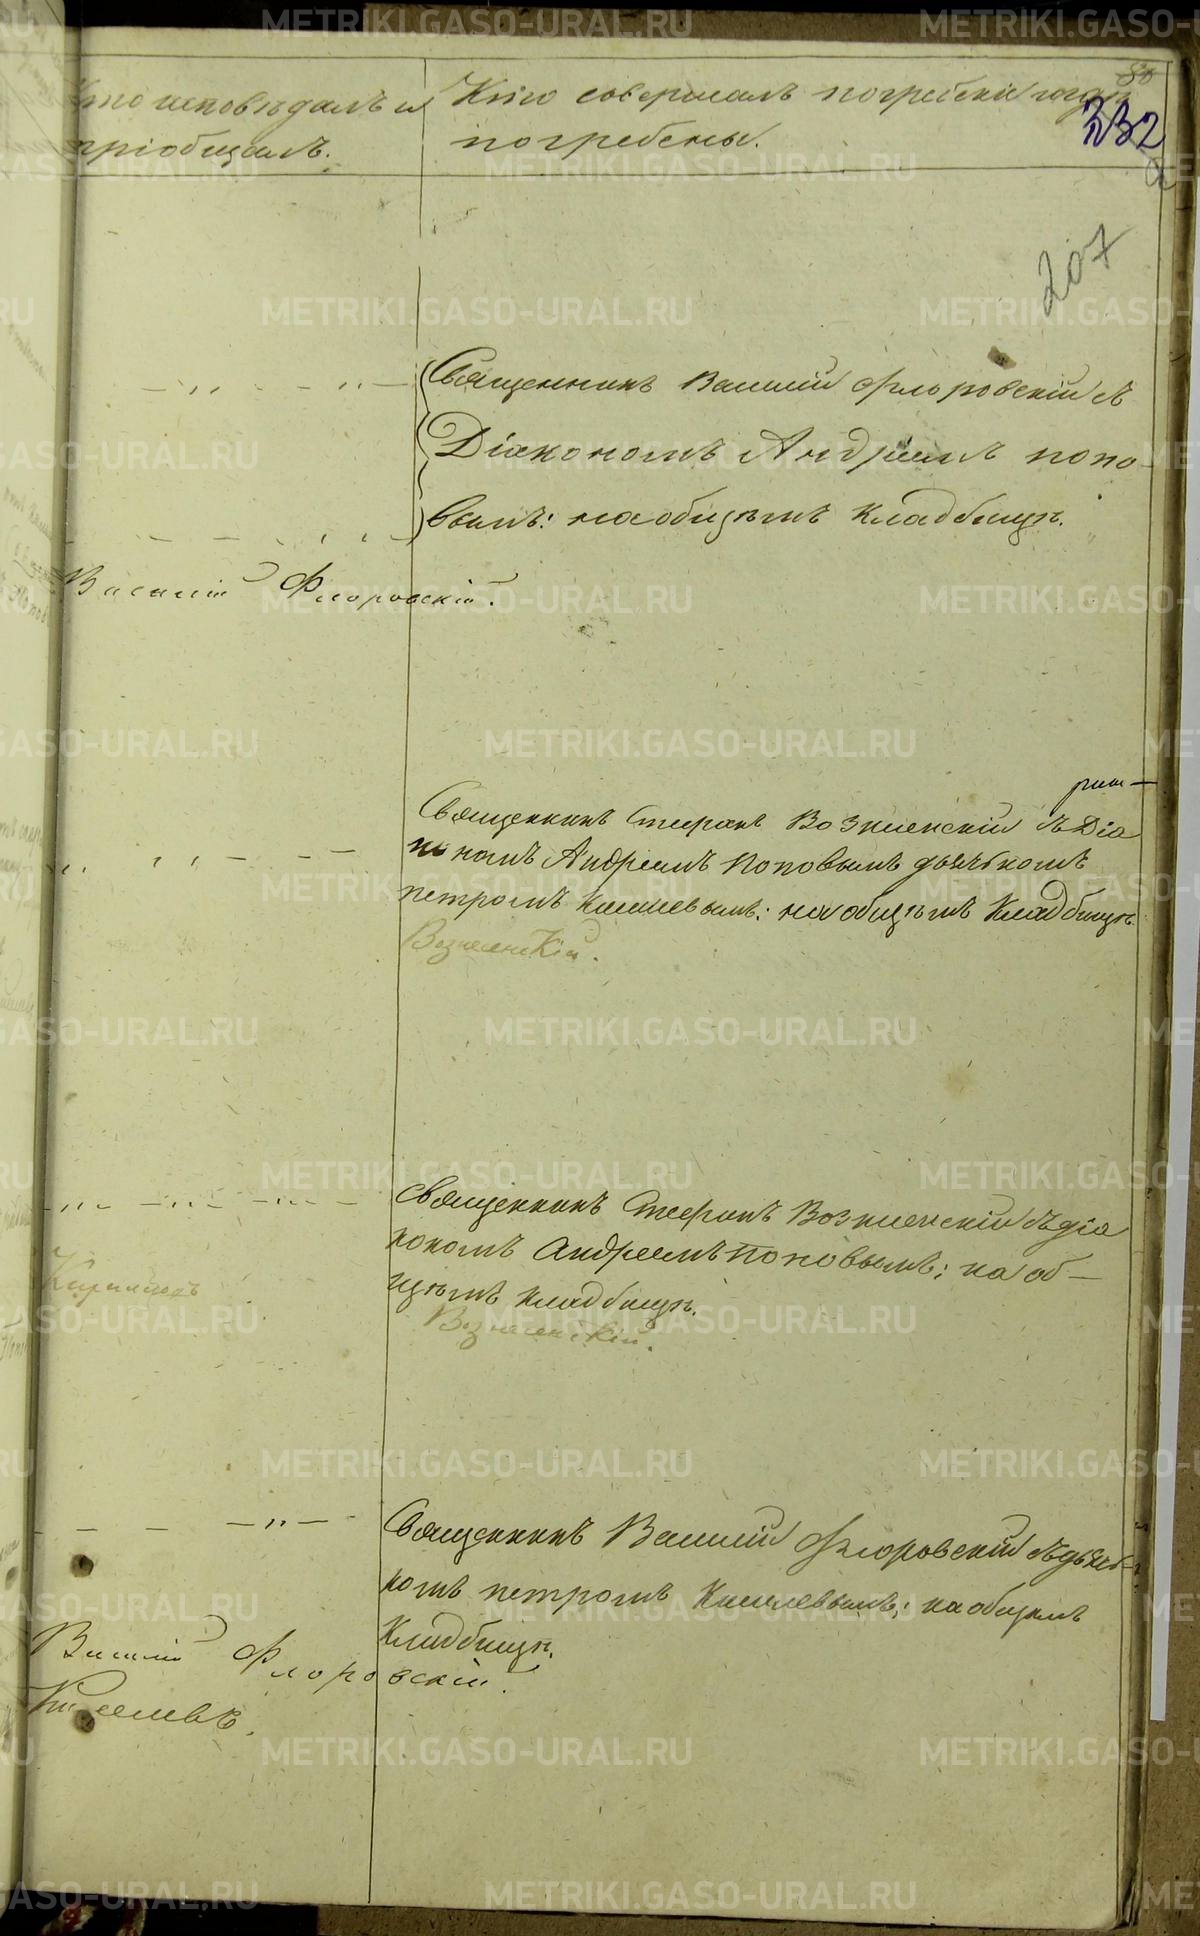 Кто исповѣдалъ и
пріобщалъ.
Кто совершалъ погребеніе и гдѣ
погребены.
80
332
207
Священникъ Василій Флоровскій съ
Діякономъ Андреемъ Попо-
вымъ: на общемъ кладбищѣ.
Василій Флоровскій.
Священникъ Стефанъ Вознесенскій съ Діа
кономъ Андреемъ Поповымъ дьячкомъ
Петромъ Киселевымъ: на общемъ Кладбищѣ
Вознесенскій.
Священникъ Стефанъ Вознесенскій съ діа
кономъ Андреемъ Поповымъ: на об-
щемъ кладбищѣ.
Вознесенскій.
Священникъ Василій Флоровскій съ дьяч-
комъ Петромъ Киселевымъ: на общемъ
Кладбищѣ.
Василій Флоровскій.
Киселевъ.
METRIKI.GASO-URAL.RU